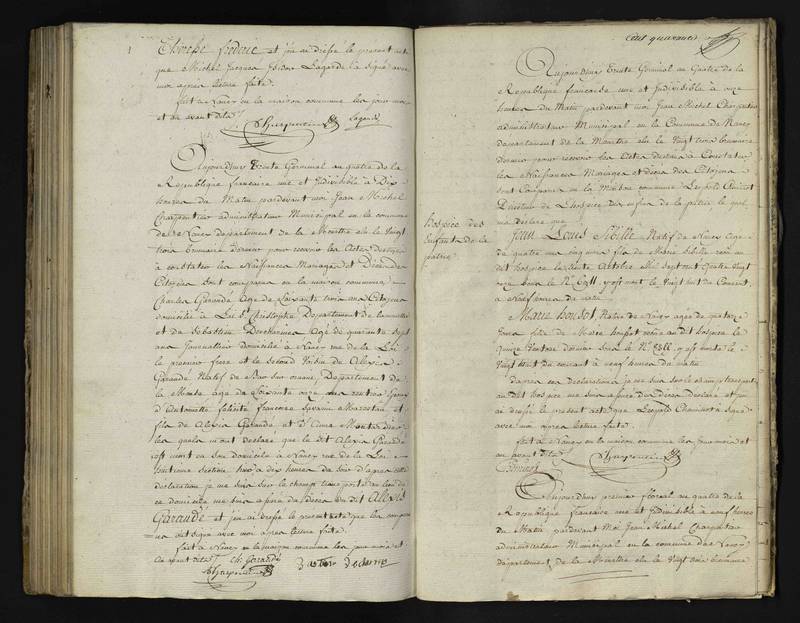 Thérèse frédéric et j'en ai dressé le présent acte
que Michel Jacques Lagarde la Signé avec
moi après lecture faite.
fait à Nancy en la maison commune les jour mois
et an avant dits
Charpentier Lagarde
Aujourd'huy Trente Germinal an quatre de la
République française une et Indivisible à Dix
heures du Matin pardevant moi Jean Michel
Charpentier administrateur Municipal en la commune
de Nancy Département de la Meurthe élu le Vingt
trois brumaire dernier pour recevoir les Actes destinés
à constater les Naissances Mariages et Décès des
Citoyens sont comparus en la maison commune
Charles Garaudé Agé de Soixante trois ans Citoyen
domicilié à Département de la
et de Sébastien Agé de quarante Sept
ans domicilié à Nancy rue de la Loi
le premier frere et le Second Voisin de Alexis
Garaudé Natif de Bar Sur ornain, Département de
la Meuse, agé de Soixante onze ans
d'antoinette félicité françoise et
fils de Alexis Garaudé et d'Anne
les quels m'ont déclaré que le dit Alexis Garaudé
est mort en son domicile à Nancy rue de la Loi
Section à dix heures du Soir d'après cette
déclaration je me suis sur le champ transporté au lieu de
ce domicile me suis assuré du décès du dit Alexis
Garaudé et j'en ai dressé le présent acte que les comparus
ont signé avec moi après lecture faite.
fait à Nancy en la maison commune les jour mois et
an avant dits Ch. Garaudé
Charpentier
Cent quarante
Aujourd'huy Trente Germinal an Quatre de la
République francaise une et Indivisible à onze
heures du Matin pardevant moi Jean Michel Charpentier
administrateur Municipal en la Commune de Nancy
département de la Meurthe élu le Vingt trois brumaire
dernier pour recevoir les Actes destinés à Constater
les Naissances Mariages et décès des Citoyens
sont Comparus en la Maison commune Léopold
Directeur de L'hospice des enfans de la patrie, le quel
m'a déclaré que
hospice des
Enfants de la
patrie
Jean Louis Sibille Natif de Nancy Agé
de quatre ans cinq mois fils de Marie Sibille reçu au
dit hospice le trente Octobre Mil Sept cent Quatre Vingt
onze Sous le N° y est mort le Vingt huit du Courant
à Neuf heures du matin
Marie housot, Native de Nancy agée de quatorze
jours fille de Marie housot reçue au dit hospice le
Quinze Ventose dernier Sous le N° y est morte le
Vingt huit du courant à neuf heures du matin
d'après ces déclarations je me suis sur le champ transporté
au dit hospice me suis assuré du décès déclaré et j'en
ai dressé le présent acte que Léopold a Signé
avec moi après lecture faite.
fait à Nancy en la maison commune les jour mois et
an avant dits
Charpentier
Aujourd'huy premier floréal an quatre de la
République Française une et Indivisible à neuf heures
du Matin pardevant Moi Jean Michel Charpentier
administrateur Municipal en la commune de Nancy
département de la Meurthe élu le Vingt trois brumaire